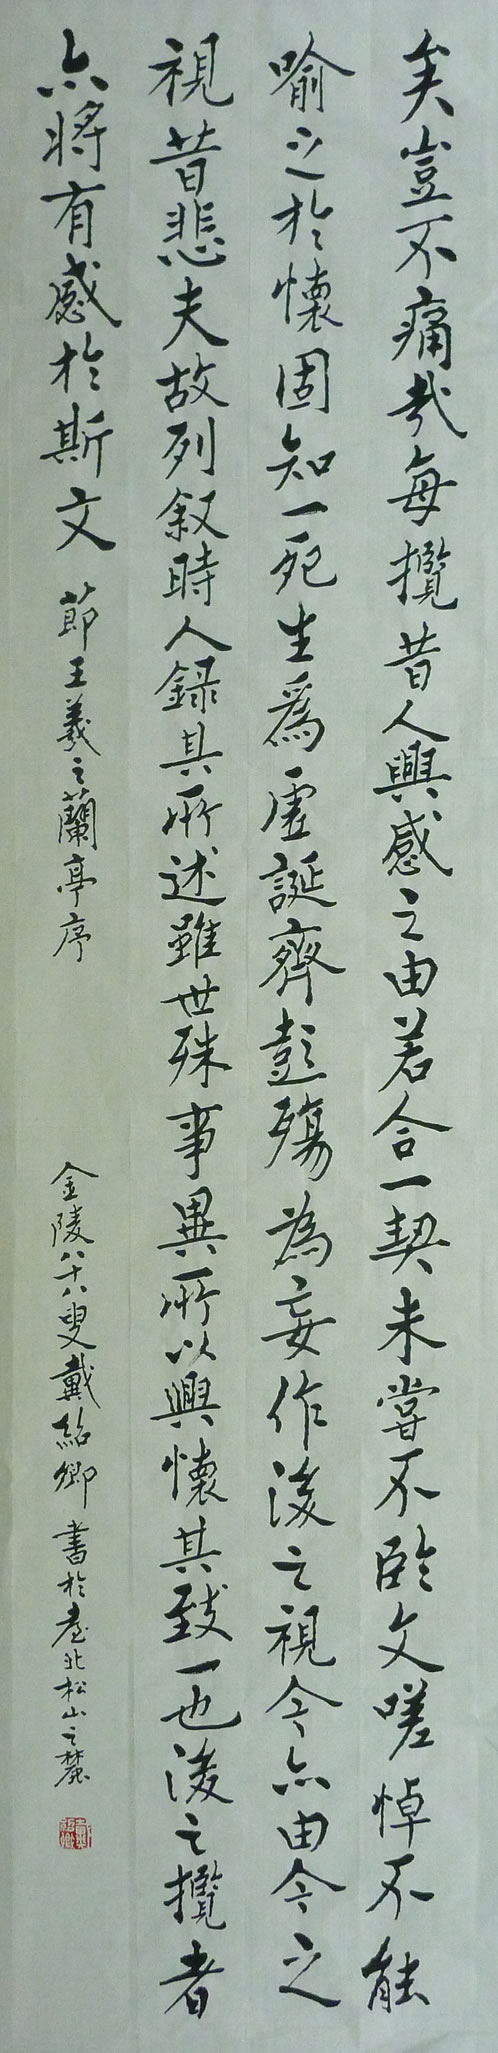 矣豈不痛哉每攬昔人興感之由若合一契未嘗不臨文嗟悼不能
喻之於懷固知一死生為虛誕齊彭殤為妄作後之視今亦由今之
視昔悲夫故列敘時人錄其所述雖世殊事異所以興懷其致一也後之攬者
亦將有感於斯文 節王羲之蘭亭序 金陵八十八叟戴紹卿 書於臺北松山之麓